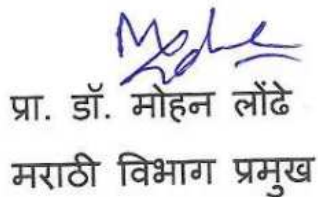 प्रा. डॉ. मोहन लोंढे
मराठी विभाग प्रमुख